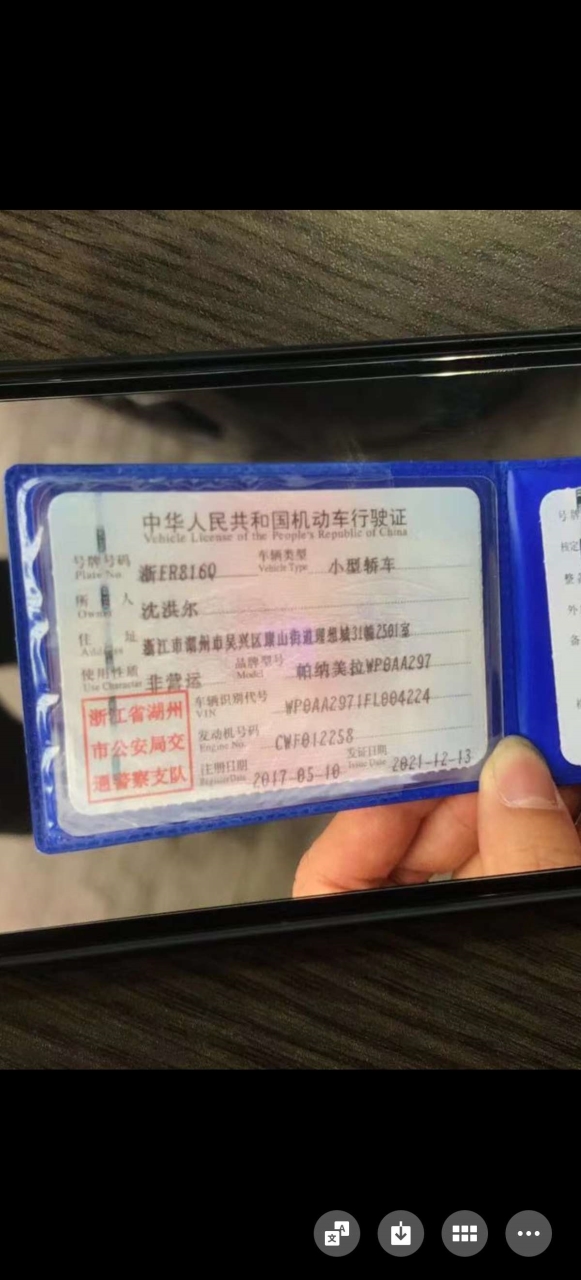 中华人民共和国机动车行驶证
Vehicle License of the People's Republic of China
号牌号码 浙ER816Q 车辆类型 小型轿车
Plate No. Vehicle Type
所 人 沈洪尔
Owner
住 址 浙江市湖州市吴兴区康山街道理想城31幢2501室
Address
使用性质 非营运 品牌型号 帕纳美拉WP0AA297
Use Character Model
浙江省湖州
市公安局交
通警察支队
车辆识别代号 WP0AA2971FL004224
VIN
发动机号码 CWF012258
Engine No.
注册日期 2017-05-10 发证日期 2021-12-13
Register Date Issue Date
号牌
核定
整
外
备